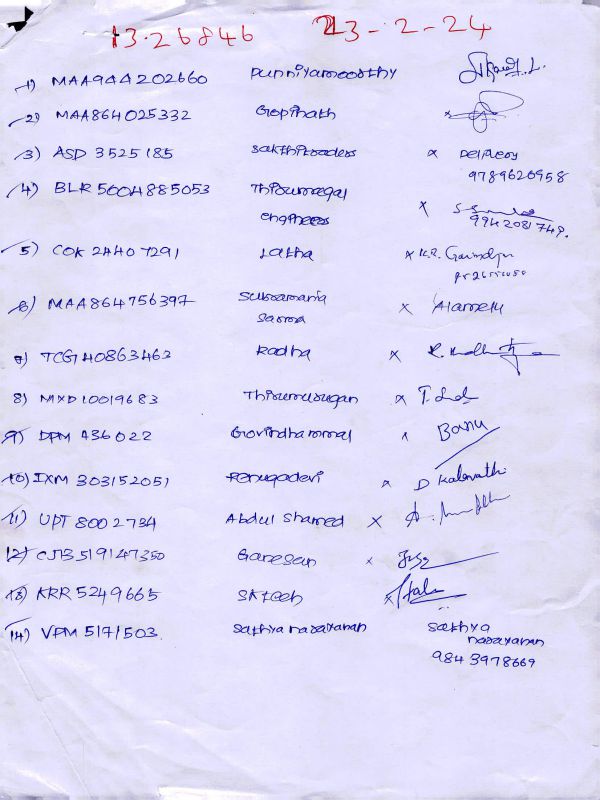 13.26846 23-2-24
1) MAA944202660 Punniyamoorthy
2) MAA864025332 Gopinath x
3) ASD 3525185 Sakthitraders x Delivery
9789620958
4) BLR 5004885053 Thirumagal
engineers x 9942081749.
5) COK 24407291 Latha x K.R.
6) MAA864756397 Subramania
Sarma x Alamelu
7) TCG140863462 Radha x
8) MXD10019683 Thirumurugan x
9) DPM 436022 Govindhammal x Banu
10) IXM 303152051 Renugadevi x D Kalavathi
11) UPT 8002734 Abdul Shamed x
12) CJB519147350 Ganesan x
13) KRR 5249665 SK tech x
14) VPM 5171503. Sathya narayanan Sathya
narayanan
9843978669